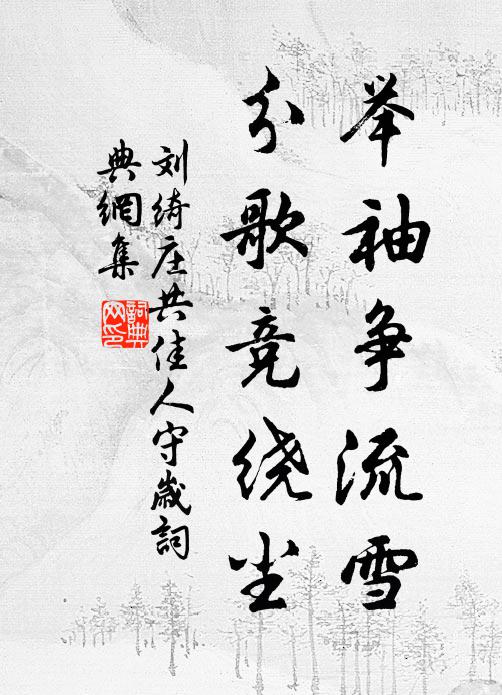 举袖争流雪
分歌竞绕尘
刘绮庄共佳人守岁詞
典網集
詞典网印